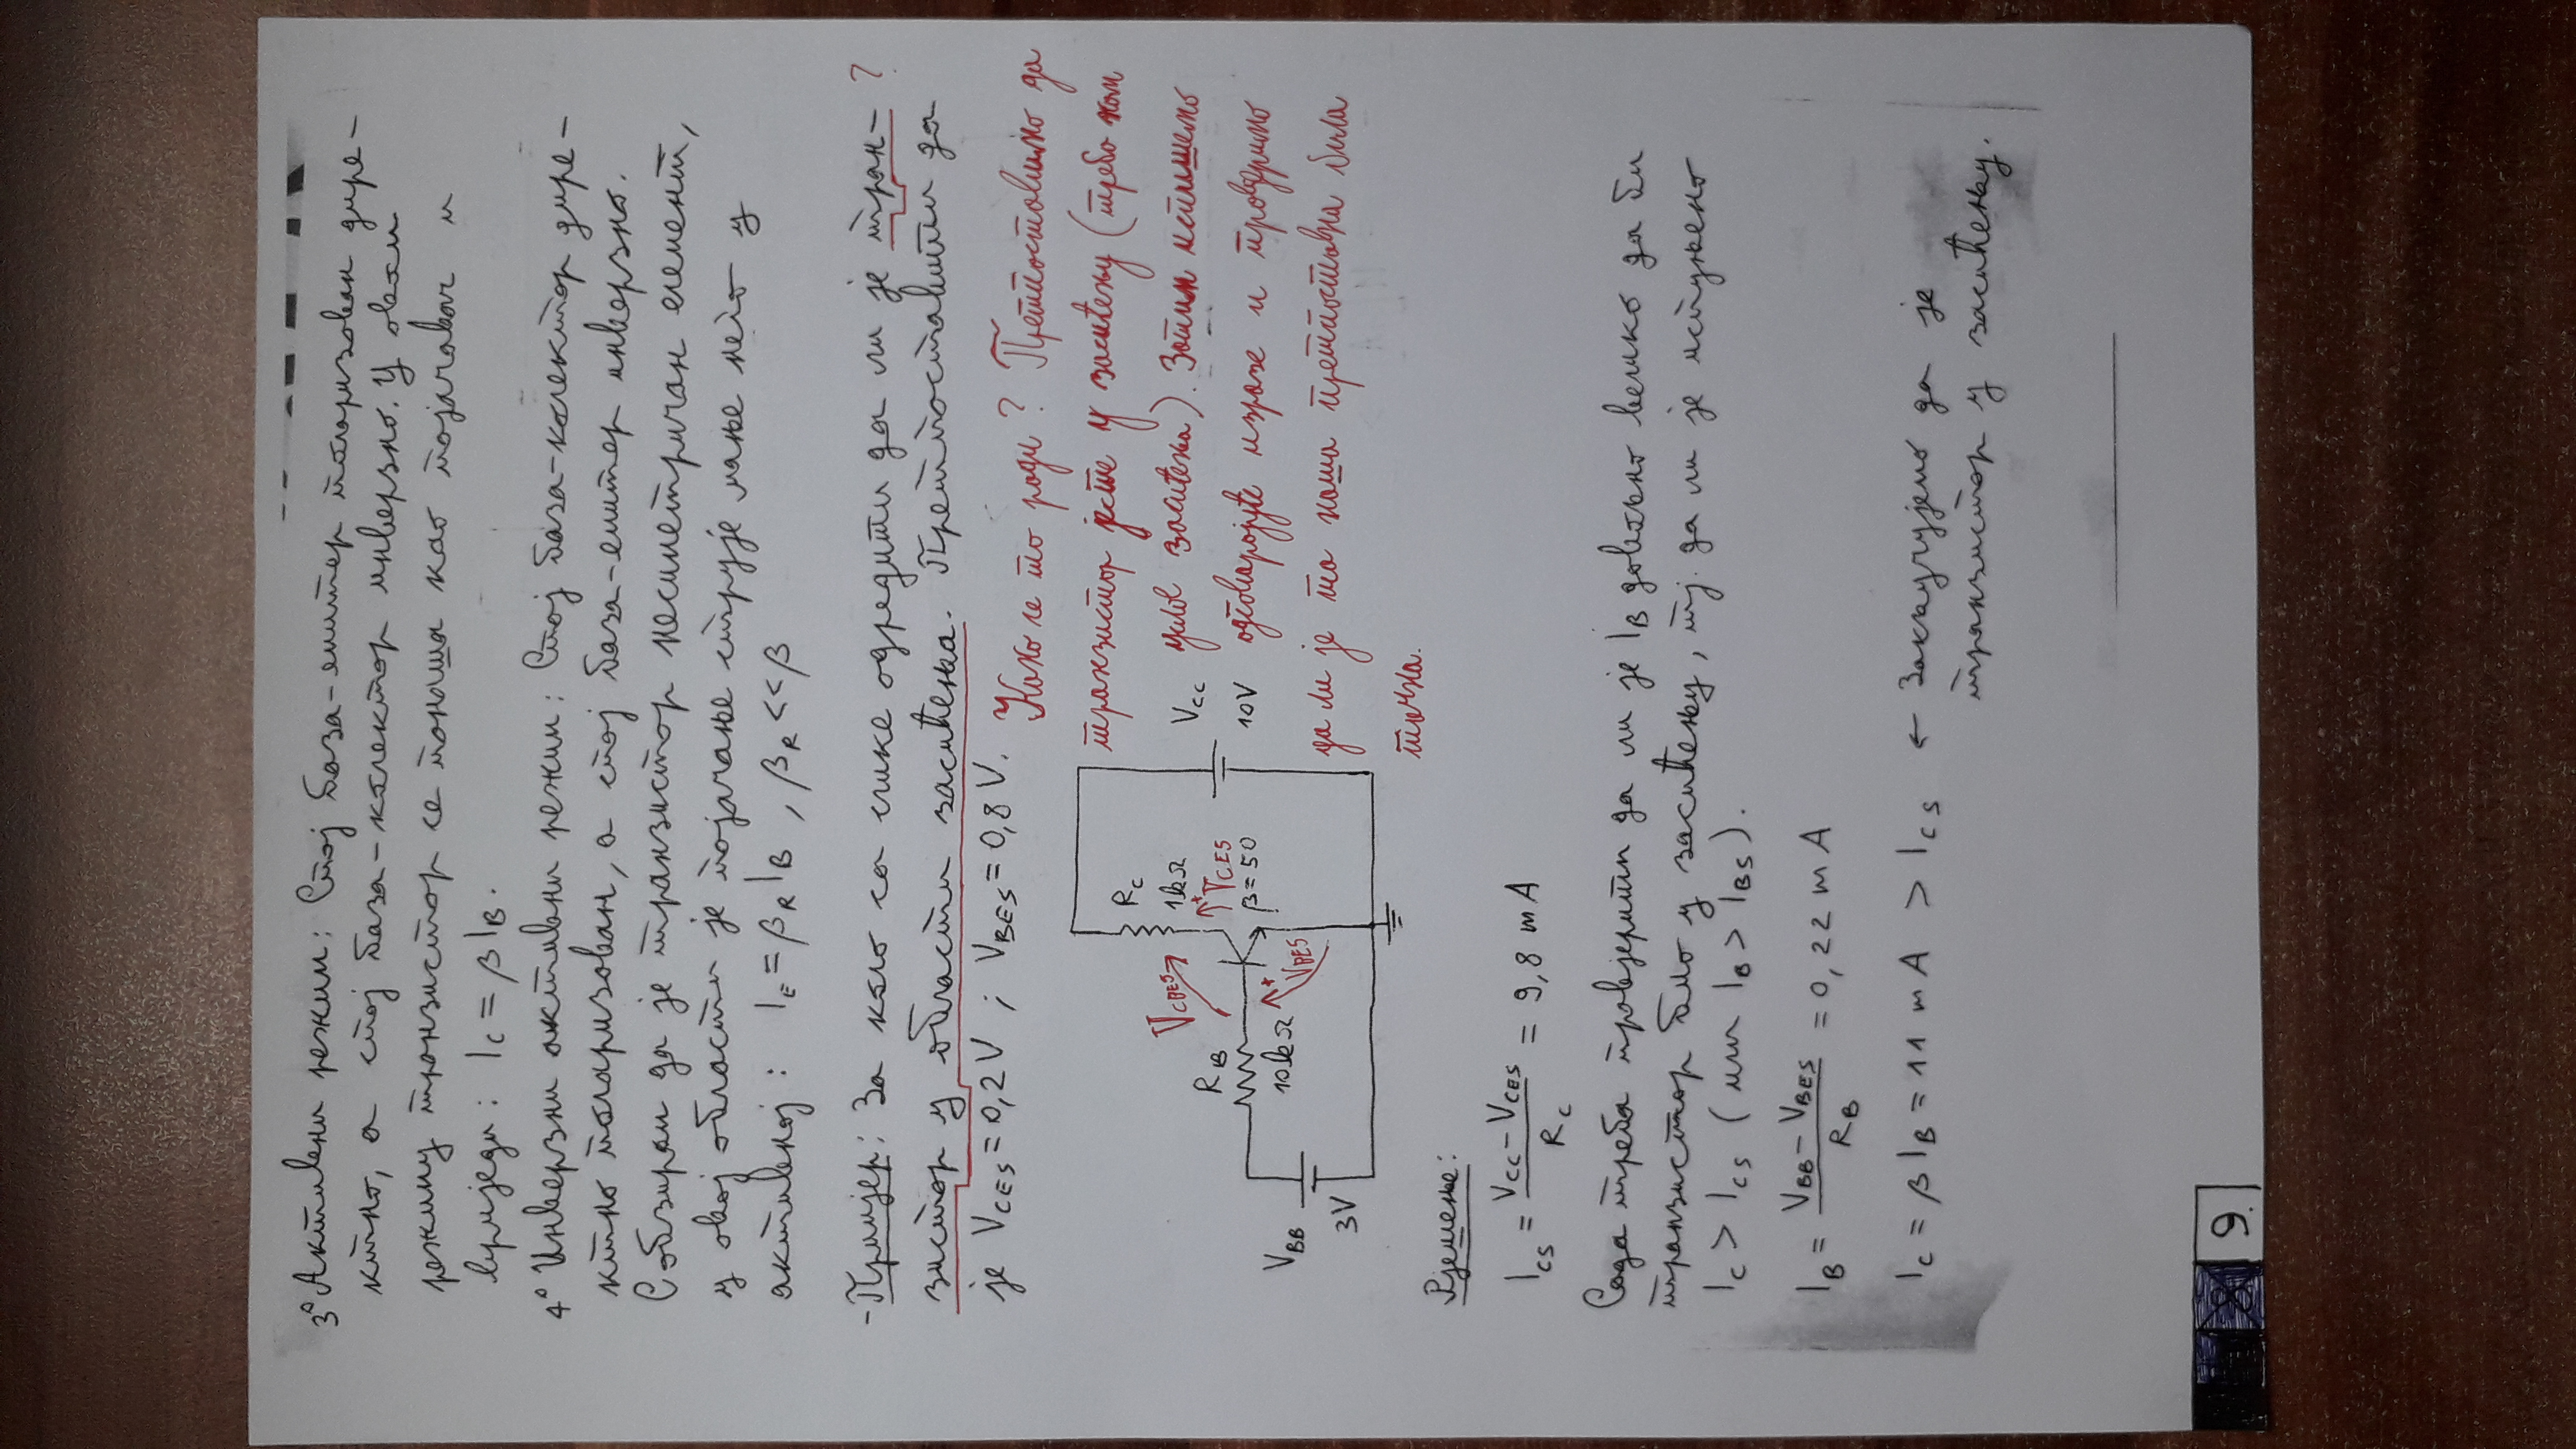 3° Активни режим: Спој база-емитер поларизован дире-
ктно, а спој база-колектор инверзно. У овом
режиму транзистор се понаша као појачавач и
вриједи: I_C = β I_B.
4° Инверзни активни режим: Спој база-колектор дире-
ктно поларизован, а спој база-емитер инверзно.
С обзиром да је транзистор несиметричан елемент,
у овој области је појачање струје мање него у
активној: I_E = β_R I_B , β_R << β
- Примјер: За коло са слике одредити да ли је тран- ?
зистор у области засићења. Претпоставити да
је V_CES = 0,2V ; V_BES = 0,8V.
Како се то ради? Претпоставимо да
транзистор јесте у засићењу (треба нам
услов засићења). Затим испишемо
одговарајуће изразе и провјеримо
да ли је та наша претпоставка била
тачна.
R_C
1kΩ
V_CBES
V_CES
+
R_B
10kΩ
β = 50
V_BES
+
V_CC
10V
V_BB
3V
Рјешење:
I_CS = (V_CC - V_CES) / R_C = 9,8 mA
Сада треба провјерити да ли је I_B довољно велико да би
транзистор био у засићењу, тј. да ли је испуњено
I_C > I_CS (или I_B > I_BS).
I_B = (V_BB - V_BES) / R_B = 0,22 mA
I_C = β I_B = 11 mA > I_CS ← Закључујемо да је
транзистор у засићењу.
8
9.